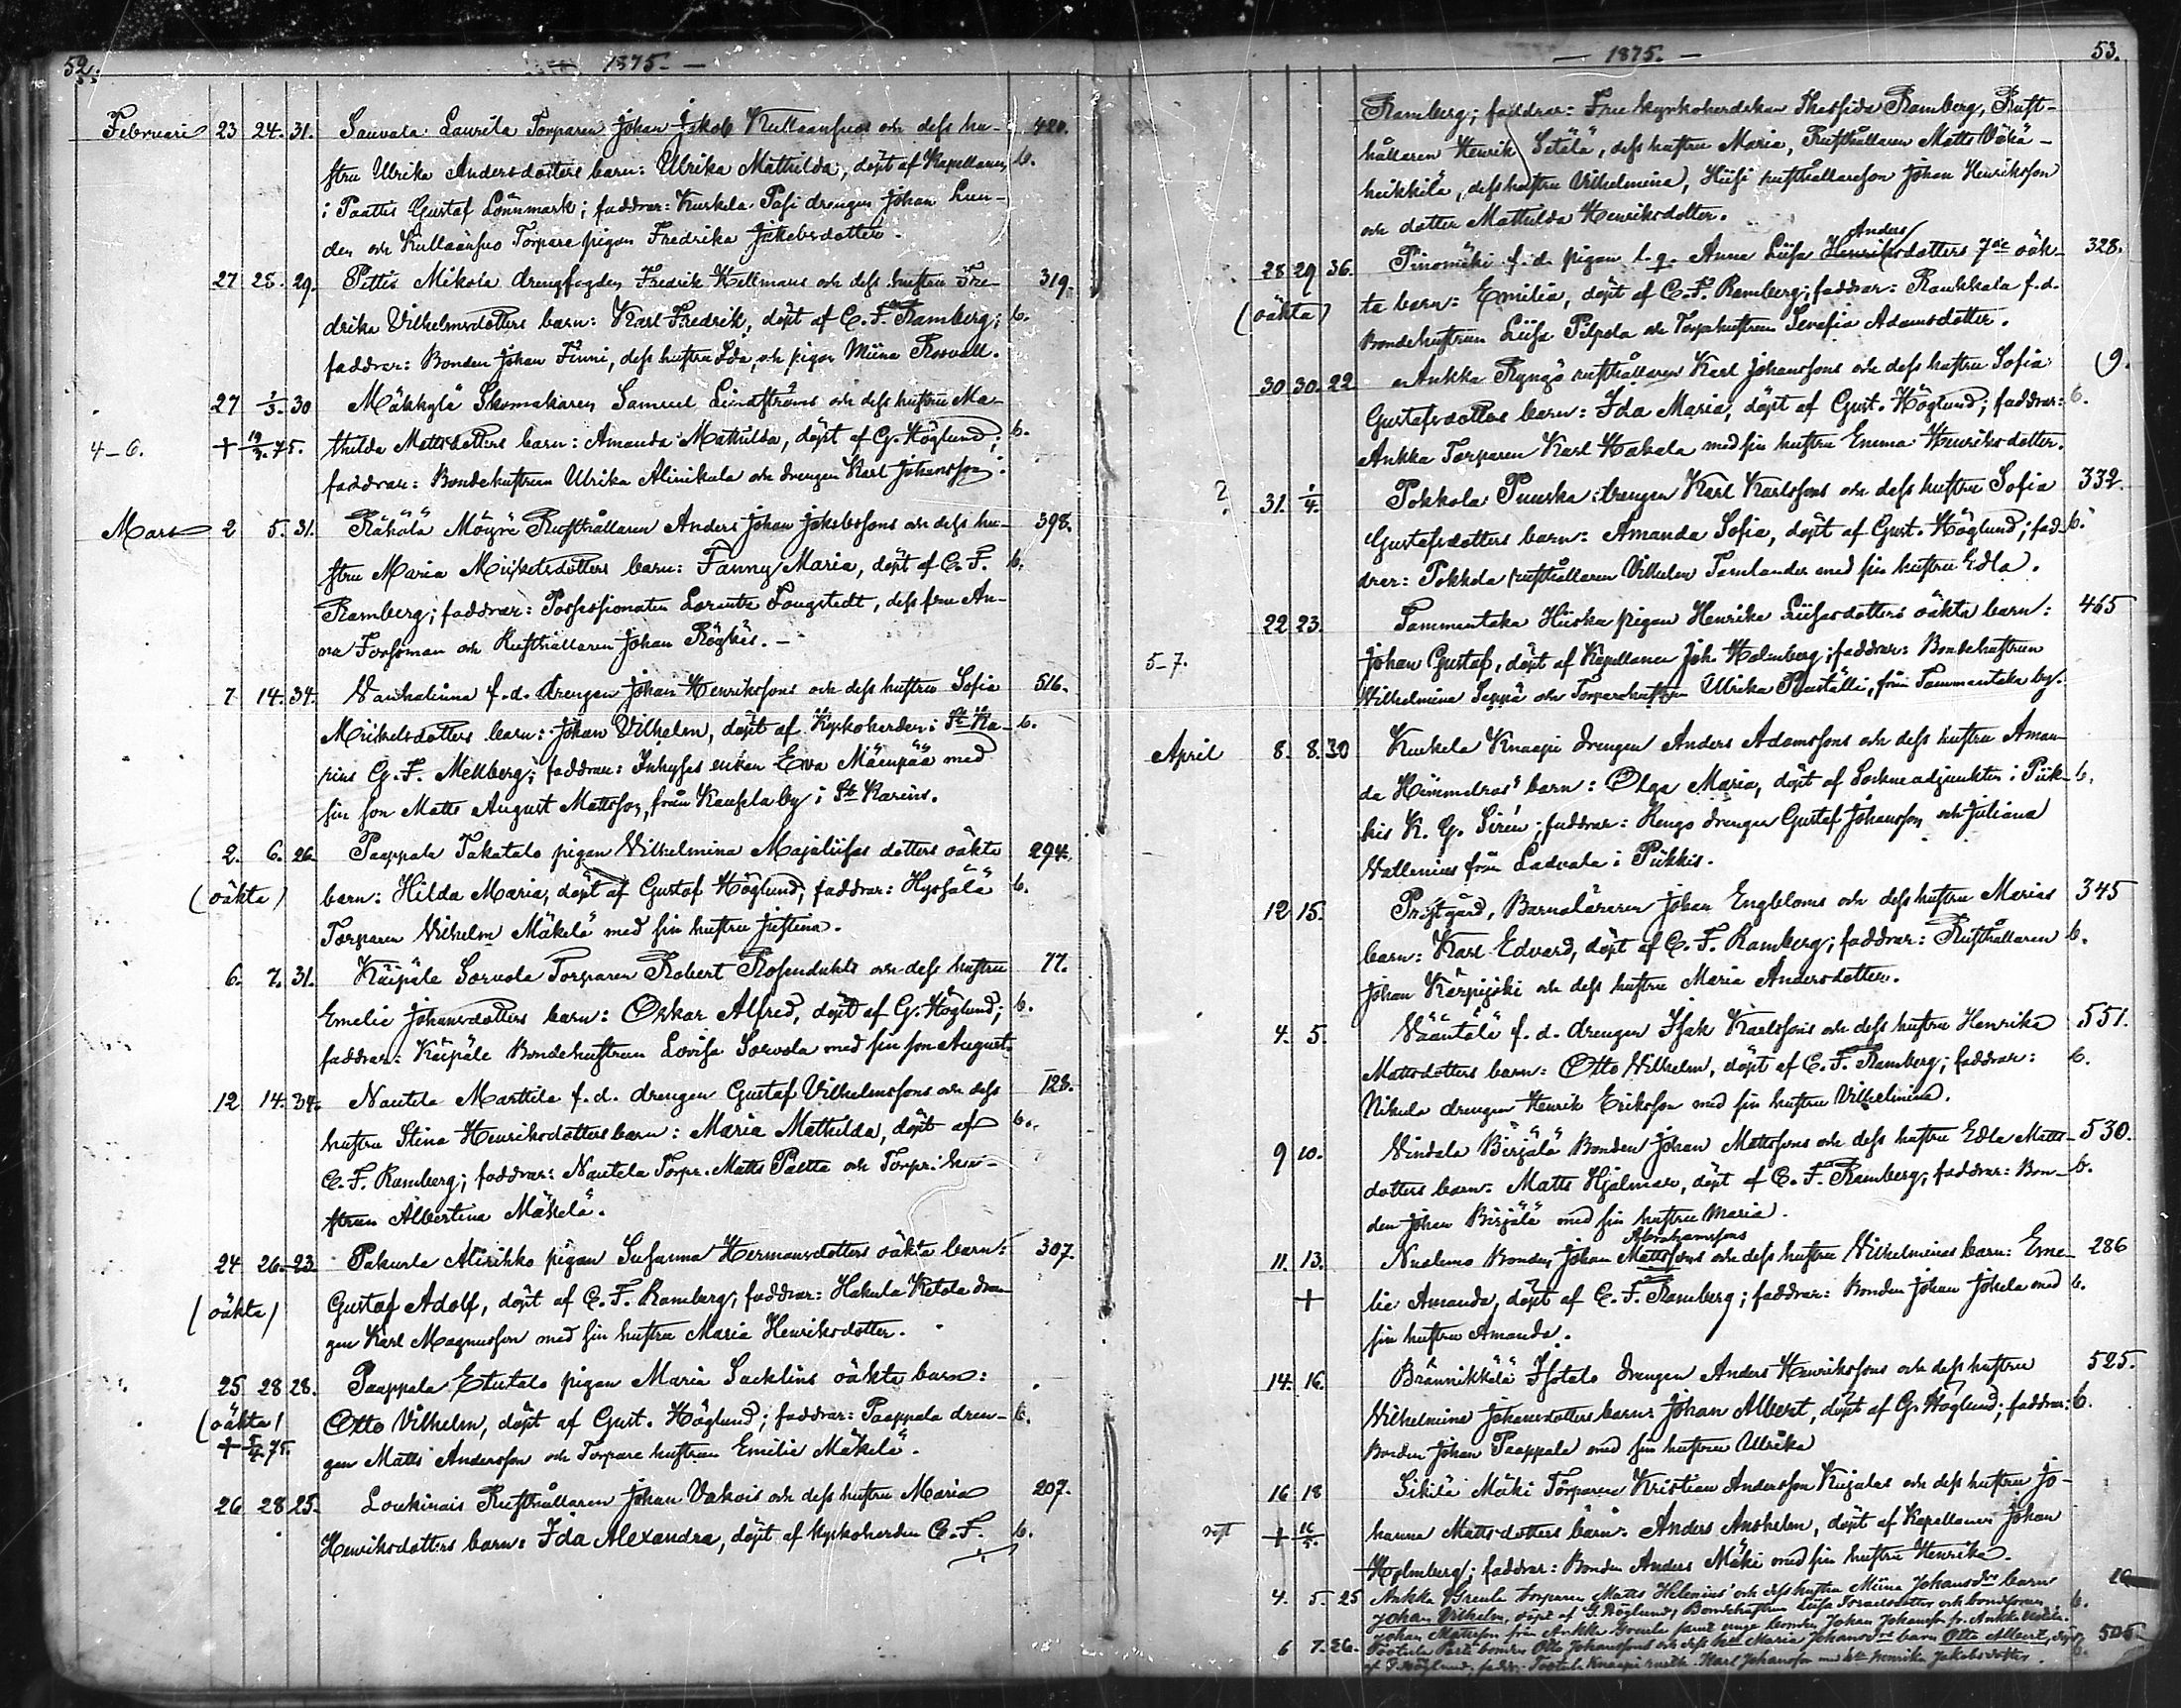 52.
— 1875. —
Februari 23 24. 31. Sauvala Laurila Torparen Johan Jakob Kullaansuus och dess hu- 420.
stru Ulrika Andersdotters barn: Ulrika Mathilda, döpt af Kapellanen b.
i Paattis Gustaf Lönnmark; faddrar: Kurkela Pasi drengen Johan Lun-
den och Kullaansuo Torpare pigan Fredrika Jakobsdotter.
27 28. 29. Pettis Mikola drengfogden Fredrik Hellmans och dess hustru Fre- 319.
drika Vilhelmsdotters barn: Karl Fredrik, döpt af C. F. Ramberg; b.
faddrar: Bonden Johan Finni, dess hustru Ida, och pigan Miina Rosvall.
27 1/3. 30 Mäkkylä Skomakaren Samuel Lindströms och dess hustru Ma-
4–6. + 19/3. 75. thilda Mattsdotters barn: Amanda Mathilda, döpt af G. Höglund; b.
faddrar: Bondehustrun Ulrika Alinikula och drengen Karl Johansson.
Mars 2 5. 31. Räkälä Möyrö Rusthållaren Anders Johan Jakobssons och dess hu- 398.
stru Maria Mickelsdotters barn: Fanny Maria, döpt af C. F. b.
Ramberg; faddrar: Possessionaten Lorentz Fougstedt, dess fru An-
na Forssman och Rusthållaren Johan Röykis. —
7 14. 34. Vanhalinna f. d. drengen Johan Henrikssons och dess hustru Sofia 516.
Mickelsdotters barn: Johan Vilhelm, döpt af Kyrkoherden i St Ka- b.
rins G. F. Mellberg; faddrar: Inhyses enkan Eva Mäenpää med
sin son Matts August Mattsson, från Kausela by i St. Karins.
2. 6. 26. Paappala Takatalo pigan Vilhelmina Majaliisas dotters oäkta 294.
(oäkta) barn: Hilda Maria, döpt af Gustaf Höglund; faddrar: Hyssälä b.
Torparen Vilhelm Mäkelä med sin hustru Justina.
6. 7. 31. Käipäle Sorvola Torparen Robert Rosendahls och dess hustru 77.
Emelie Johansdotters barn: Oskar Alfred, döpt af G. Höglund; b.
faddrar: Käipäle Bondehustrun Lovisa Sorvola med sin son August.
12 14. 34. Nautela Marttila f. d. drengen Gustaf Vilhelmssons och dess 128.
hustru Stina Henriksdotters barn: Maria Mathilda, döpt af b.
C. F. Ramberg; faddrar: Nautela Torpr. Matts Paetta och Torpr. hu-
strun Albertina Mäkelä.
24 26. 23. Pakurla Alirihko pigan Susanna Hermansdotters oäkta barn: 307.
(oäkta) Gustaf Adolf, döpt af C. F. Ramberg; faddrar: Hakula Ketola dren-
gen Karl Magnusson med sin hustru Maria Henriksdotter.
25 28 28. Paappala Etutalo pigan Maria Sacklins oäkta barn:
(oäkta) Otto Vilhelm, döpt af Gust. Höglund; faddrar: Paappala dren- b.
+ 5/4 75. gen Matts Andersson och Torpare hustrun Emilie Mäkelä.
26 28 25. Loukinais Rusthållaren Johan Vakois och dess hustru Maria 207.
Henriksdotters barn: Ida Alexandra, döpt af Kyrkoherden C. F. b.
— 1875. —
53.
Ramberg; faddrar: Fru kyrkoherdskan Ramberg, Rust-
hållaren Henrik Setälä, dess hustru Maria, Rusthållaren Matts Vähä-
heikkilä, dess hustru Vilhelmina, Hiisi rusthållareson Johan Henriksson
och dotter Mathilda Henriksdotter.
Anders
28 29 36. Pinomäki f. d. pigan l. q. Anna Liisa Henriksdotters 7de oäk- 328.
(oäkta) ta barn: Emilia, döpt af C. F. Ramberg; faddrar: Raukkala f. d.
Bondehustrun Liisa Pilpola och Torparehustrun Serafia Adamsdotter.
30 30. 22 Ankka Ryngö rusthållaren Karl Johanssons och dess hustru Sofia 9.
Gustafsdotters barn: Ida Maria, döpt af Gust. Höglund; faddrar: b.
Ankka Torparen Karl Hakala med sin hustru Emma Henriksdotter.
? 31. 1/4. Pokkola Puuska drengen Karl Karlssons och dess hustru Sofia 332.
Gustafsdotters barn: Amanda Sofia, döpt af Gust. Höglund; fad- b.
drar: Pokkola rusthållaren Vilhelm Tamlander med sin hustru Edla.
22 23. Tammentaka Hiiska pigan Henrika Liisasdotters oäkta barn: 465
5–7. Johan Gustaf, döpt af Kapellanen Joh. Holmberg; faddrar: Bondehustrun
Vilhelmina Seppä och Torparehustrun Ulrika Rantälli, från Tammentaka by.
April 8. 8. 30 Kurkela Knaapi drengen Anders Adamssons och dess hustru Aman-
da Himmelros' barn: Olga Maria, döpt af Sockneadjunkten i Piik- b.
kis K. G. Sirén; faddrar: Rengo drengen Gustaf Johansson och Juliana
Vallenius från Ladvala i Piikkis.
12 15. Prästgård, Barnaläraren Johan Engbloms och dess hustru Marias 345
barn: Karl Edvard, döpt af C. F. Ramberg; faddrar: Rusthållaren b.
Johan Kärpijoki och dess hustru Maria Andersdotter.
4. 5. Vääntälä f. d. drengen Isak Karlssons och dess hustru Henrika 551.
Mattsdotters barn: Otto Vilhelm, döpt af C. F. Ramberg; faddrar: b.
Nikula drengen Henrik Eriksson med sin hustru Vilhelmina.
9 10. Vindala Birjälä Bonden Johan Mattssons och dess hustru Edla Matts- 530.
dotters barn: Matts Hjalmar, döpt af C. F. Ramberg; faddrar: Bon- b.
den Johan Birjälä med sin hustru Maria.
Abrahamssons
11. 13. Nualemo Bonden Johan Mattssons och dess hustru Vilhelminas barn: Eme- 286
+ lie Amanda, döpt af C. F. Ramberg; faddrar: Bonden Johan Jokela med b.
sin hustru Amanda.
14. 16. Brännikkälä Isotalo drengen Anders Henrikssons och dess hustru 525.
Vilhelmina Johansdotters barn: Johan Albert, döpt af G. Höglund; faddrar: b.
Bonden Johan Paappala med sin hustru Ulrika
16 18 Sikilä Mäki Torparen Kristian Andersson Kujalas och dess hustru Jo-
+ 16/5. hanna Mattsdotters barn: Anders Anshelm, döpt af Kapellanen Johan
Holmberg; faddrar: Bonden Anders Mäki med sin hustru Henrika.
4. 5. 25 Ankka Greula torparen Matts Helenius' och dess hustru Miina Johansdrs barn
Johan Vilhelm, döpt af G. Höglund; Bondehustrun Liisa Israelsdotter och bondesonen b.
Johan Mattsson från Ankka Greula samt unge bonden Johan Johansson fr. Ankka
6 7. 26. Tootula Perti bonden Otto Johanssons och dess hu Maria Johansdrs barn Otto Albert, döpt 505
af G. Höglund; faddr: Tootula Knaapi Karl Johansson med h. Henrika Jakobsdotter. b.